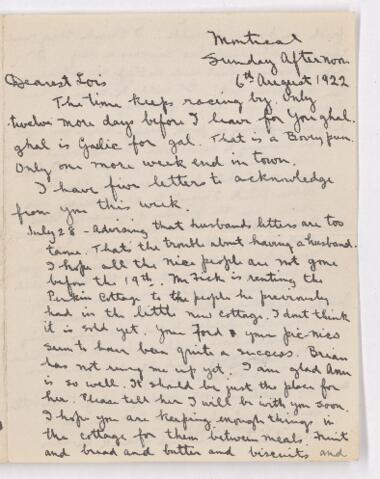 Montreal
Sunday Afternoon
6th August 1922
Dearest Lois
The time keeps racing by. Only
twelve more days before I leave for Youghal.
ghal is Gaelic for gal. That is a Bovey pun.
Only one more week end in town.
I have five letters to acknowledge
from you this week.
July 28 - advising that husbands letters are too
tame. That's the trouble about having a husband.
I hope all the nice people are not gone
before the 19th. Mr Fick is renting the
Perkin Cottage to the people he previously
had in the little new cottage. I dont think
it is sold yet. Your Ford & your pic-nics
seem to have been quite a success. Brian
has not rung me up yet. I am glad Ann
is so well. It should be just the place for
her. Please tell her I will be with you soon.
I hope you are keeping enough things in
the cottage for them between meals. Fruit
and bread and butter and biscuits and